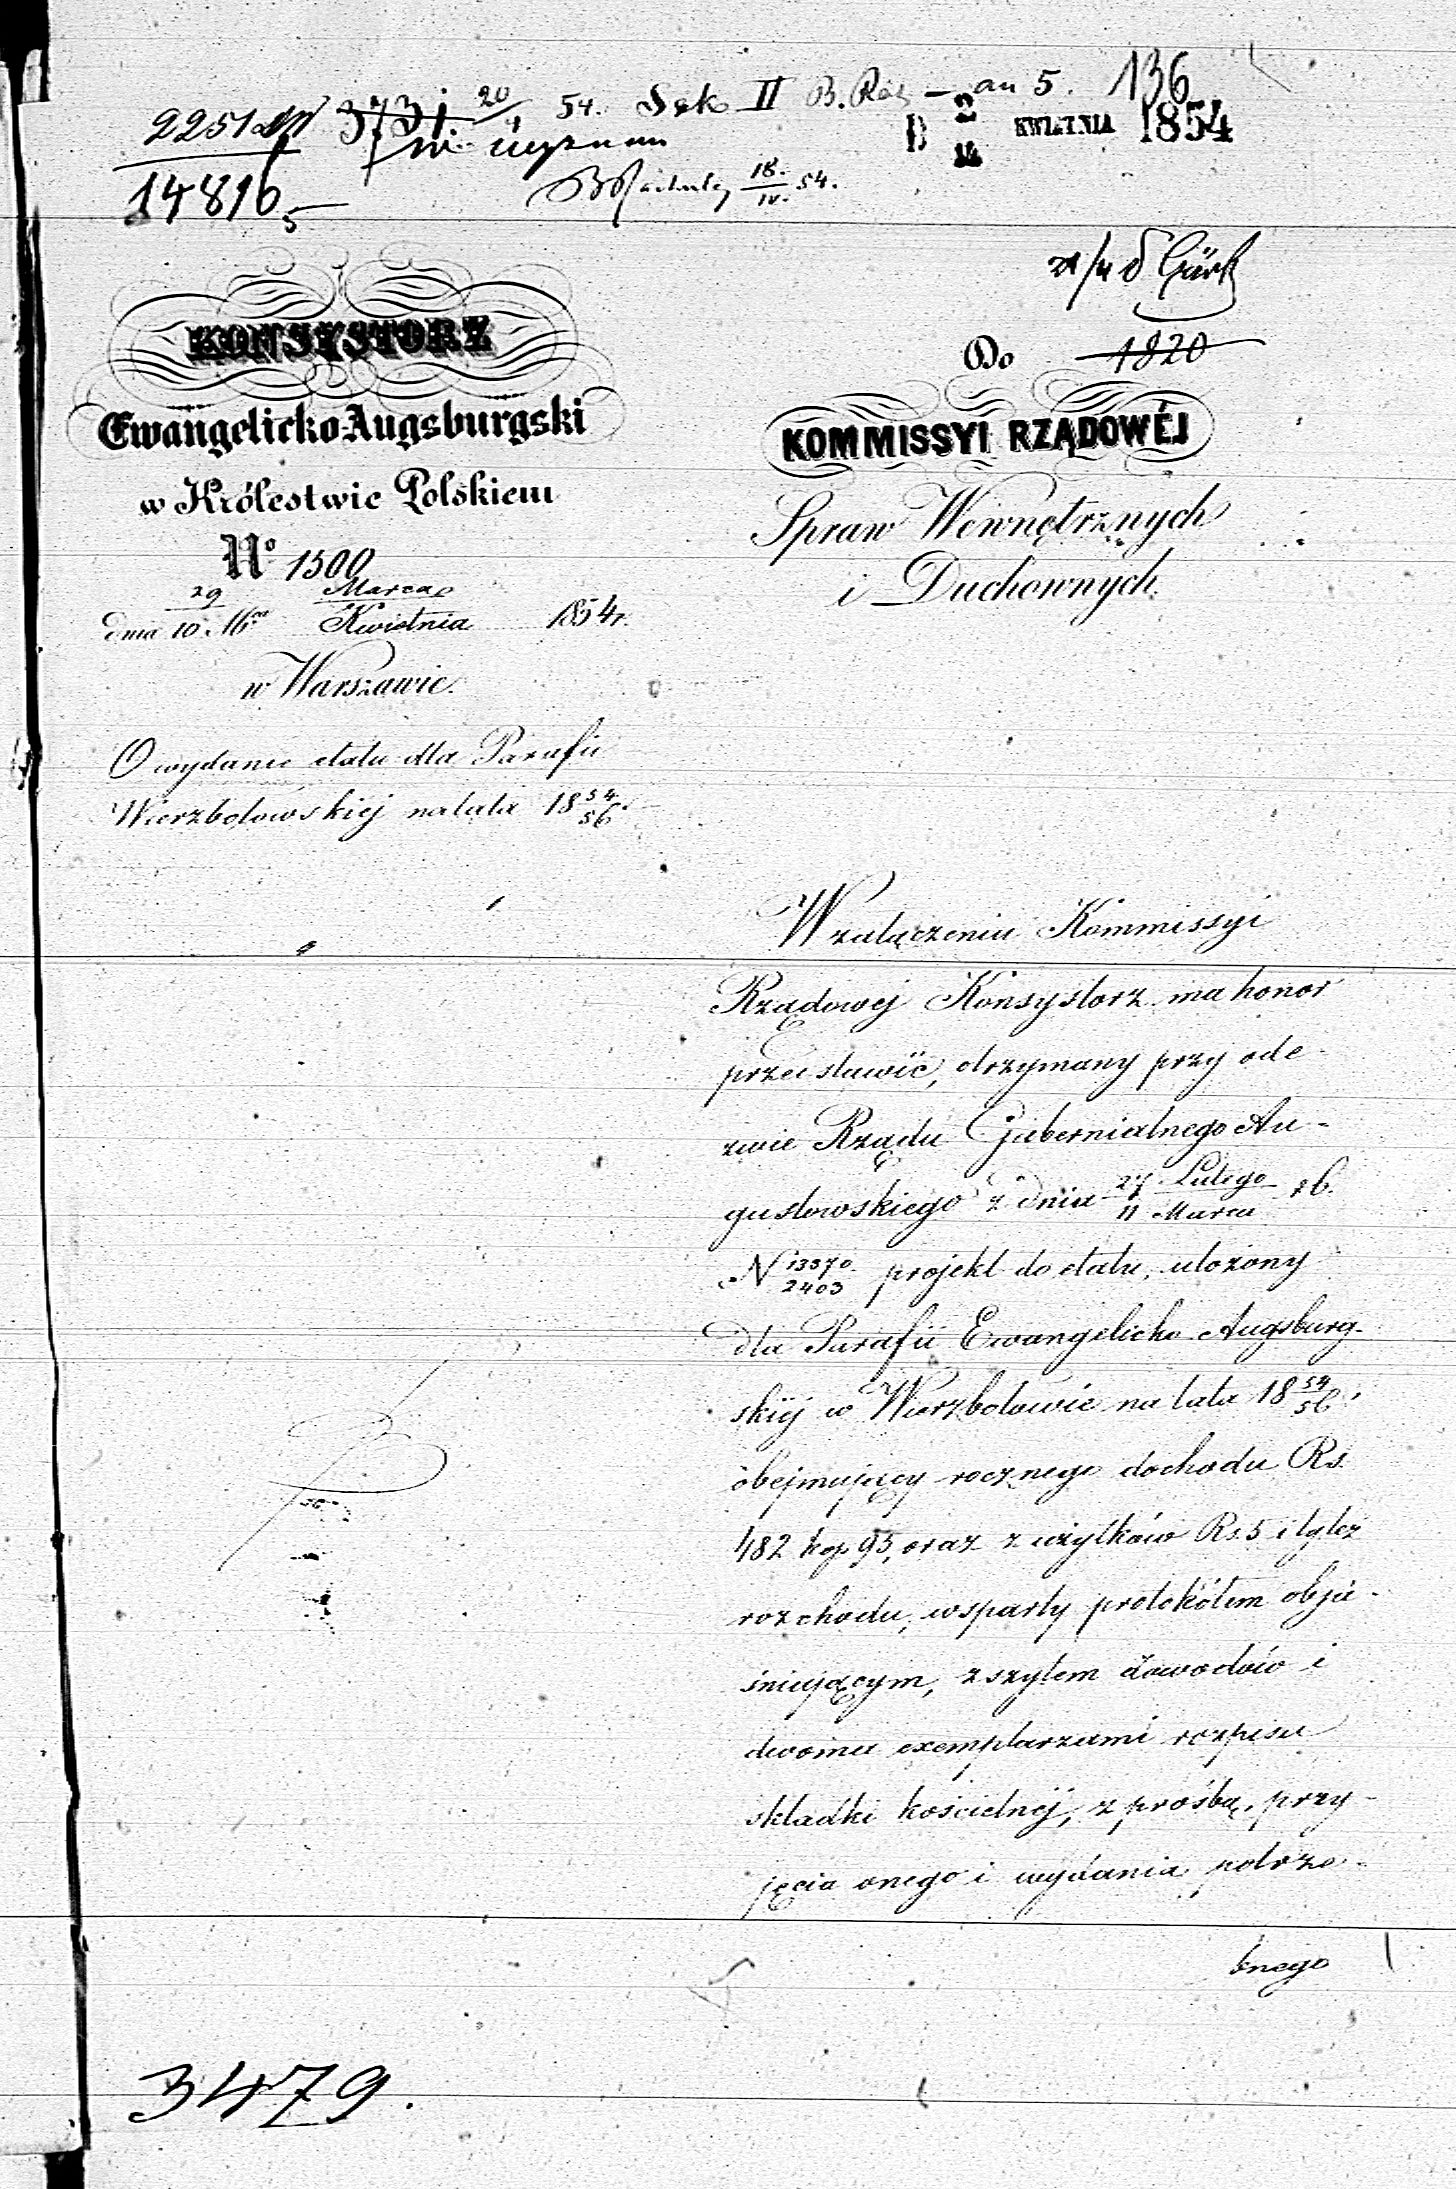 136
14816
54.
II
KWIETNIA 1854
18./IV. 54.
KONSYSTORZ
Ewangelicko-Augsburgski
w Królestwie Polskiem
No 1500
dnia 29/10 Marca/Kwietnia 1854 r.
w Warszawie.
O wydanie etatu dla Parafii
Wierzbołowskiej na lata 18 54/56.
1820
Do
KOMMISSYI RZĄDOWÉJ
Spraw Wewnętrznych
i Duchownych.
W załączeniu Kommissyi
Rządowej Konsystorz ma honor
przedstawić, otrzymany przy ode-
zwie Rządu Gubernialnego Au-
gustowskiego z dnia 27 Lutego/11 Marca r b.
N 13370/2403 projekt do etatu, ułożony
dla Parafii Ewangelicko Augsburg-
skiej w Wierzbołowie na lata 18 54/56,
obejmujący rocznego dochodu Rs.
482 kop 93, oraz z użytków Rs. 5 i tyleż
rozchodu, wsparty protokółem obja-
śniającym, zszytem dowodów i
dwoma exemplarzami rozpisu
składki kościelnej, z prośbą, przy-
jęcia onego i wydania potrze-
bnego
3479.